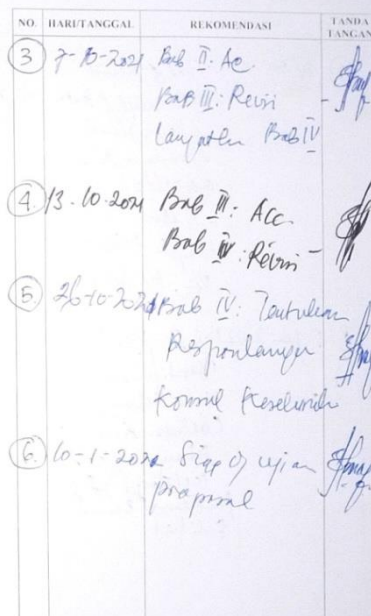 NO. HARI/TANGGAL REKOMENDASI TANDA TANGAN
3 7-10-2021 Bab II: Acc
Bab III: Revisi
Lanjutkan Bab IV
4. 13-10-2021 Bab III: Acc.
Bab IV: Revisi
5. 26-10-2021 Bab IV: Tentukan
Respondennya
Konsul Keseluruhan
6. 10-1-2022 Siap uji an
proposal